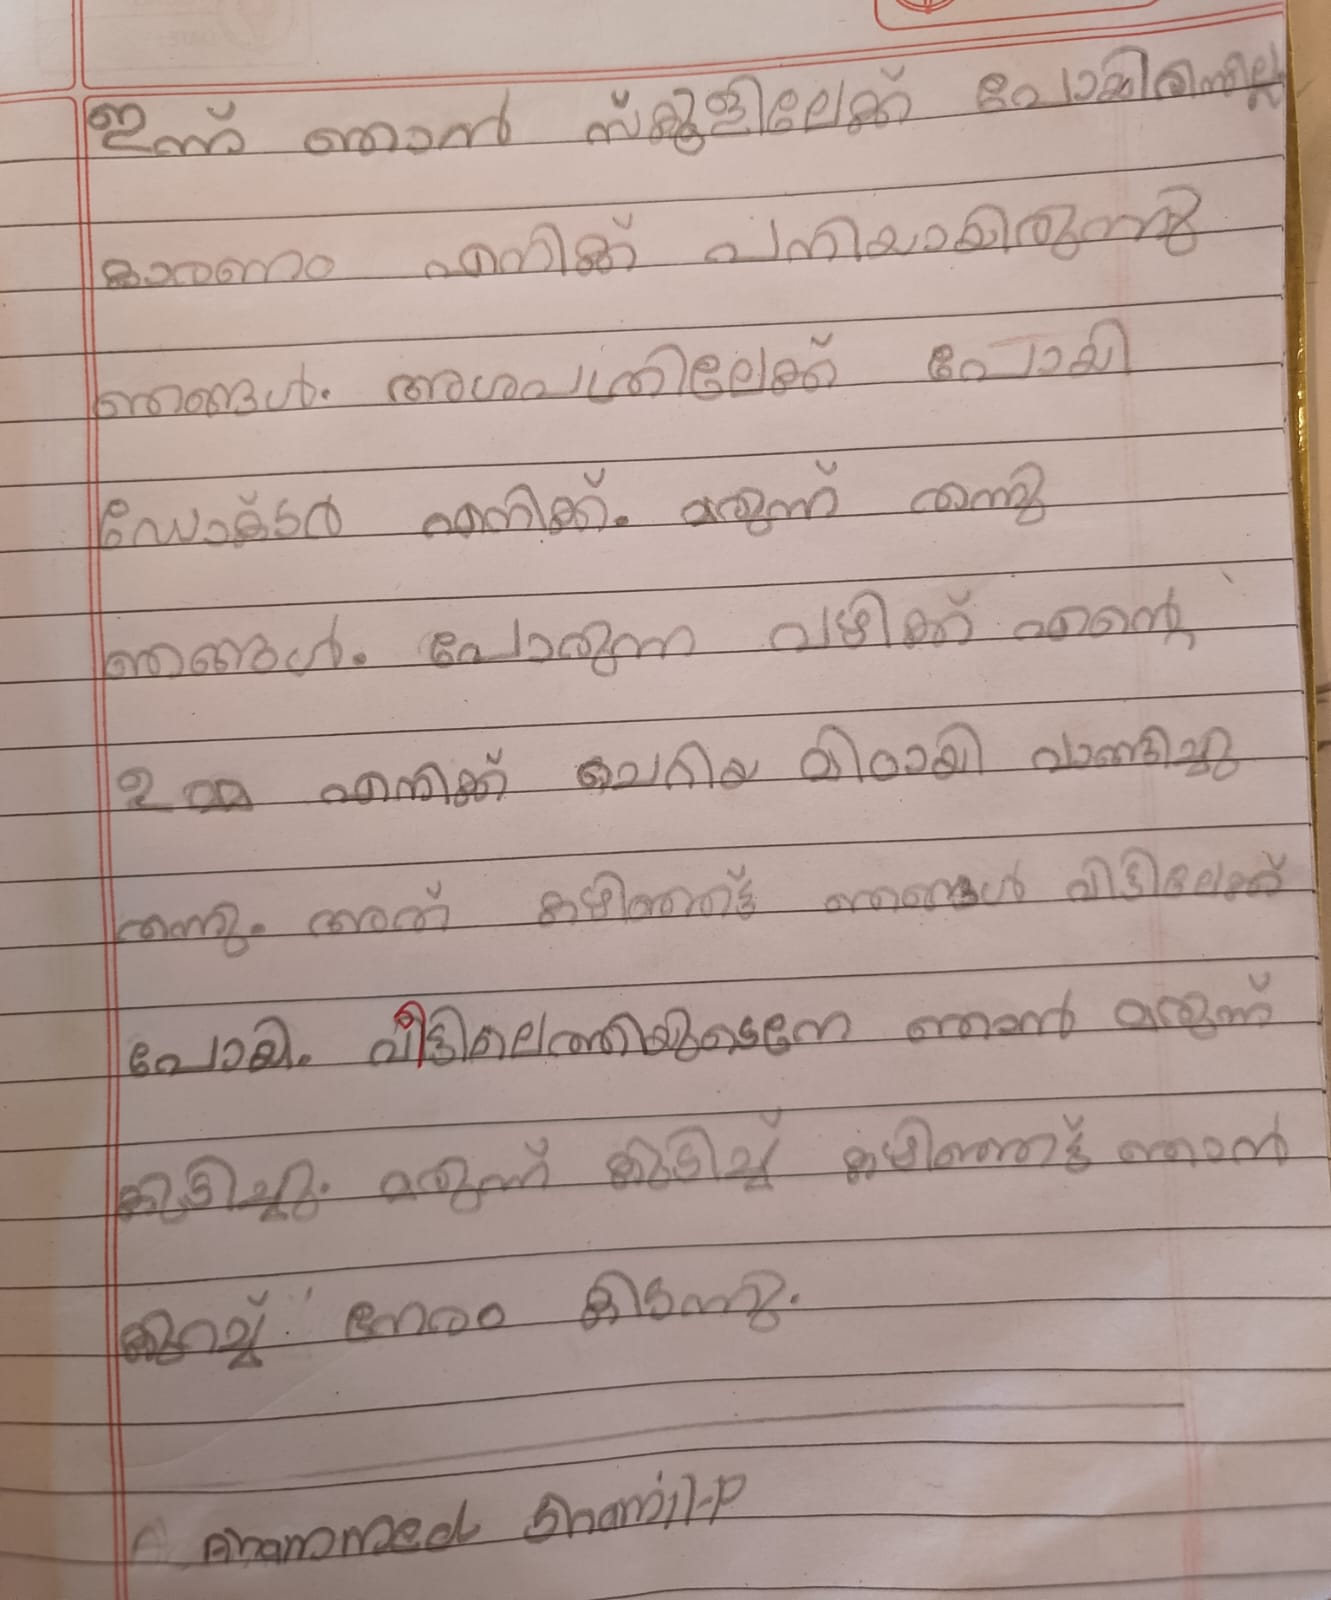 ഇന്ന് ഞാൻ സ്കൂളിലേക്ക് പോയിരുന്നില്ല
കാരണം എനിക്ക് പനിയായിരുന്നു
ഞങ്ങൾ. അശുപത്രിലേക്ക് പോയി
ഡോക്ടർ എനിക്ക്. മരുന്ന് തന്നു
ഞങ്ങൾ. പോരുന്ന വഴിക്ക് എന്റെ
ഉമ്മ എനിക്ക് ചെറിയ മിഠായി വാങ്ങിച്ചു
തന്നു. അത് കഴിഞ്ഞട്ട് ഞങ്ങൾ വിട്ടിലേക്ക്
പോയി. വീട്ടിലെത്തിയുടെനേ ഞാൻ മരുന്ന്
കുടിച്ചു. മരുന്ന് കുടിച്ച് കഴിഞ്ഞട്ട് ഞാൻ
കുറച്ച് നേരം കിടന്നു.
Ahammed Shamil-P